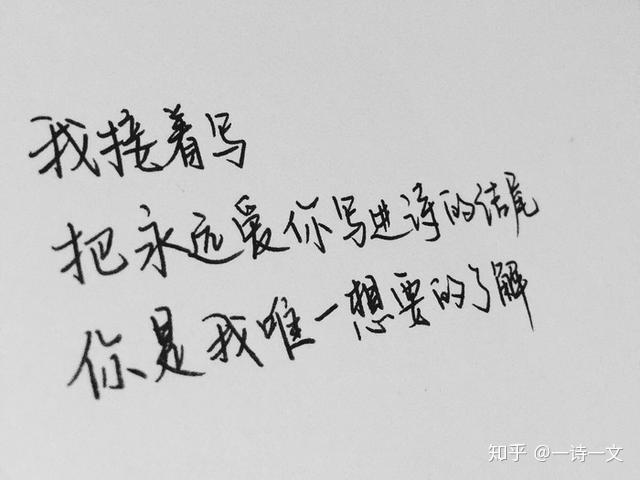 我接着写
把永远爱你写进诗的结尾
你是我唯一想要的了解
知乎 @一诗一文